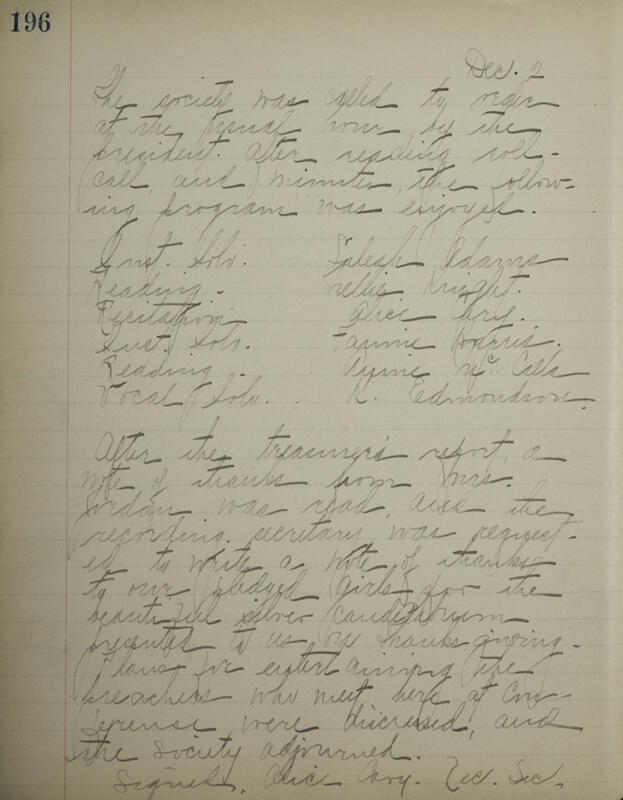 196
Dec. 2
The society was called to order
at the usual hour by the
president. After reading roll-
call, and minutes, the follow-
ing program was enjoyed.
Inst. Solo. Adams
Reading - Nellie Knight.
Recitation Alice Cary.
Inst. Solo. Fannie Harris.
Reading - Annie McCalla
Vocal Solo. . K. Edmondson.
After the treasurer's report, a
note of thanks from Mrs.
Jordan was read, and the
recording secretary was request-
ed to write a note of thanks
to our pledged girls for the
beautiful silver candelabrum
presented to us on Thanksgiving.
Plans for entertaining the
preachers who meet here at Con-
ference were discussed, and
the society adjourned.
Signed, Alice Cary. Rec. Sec.